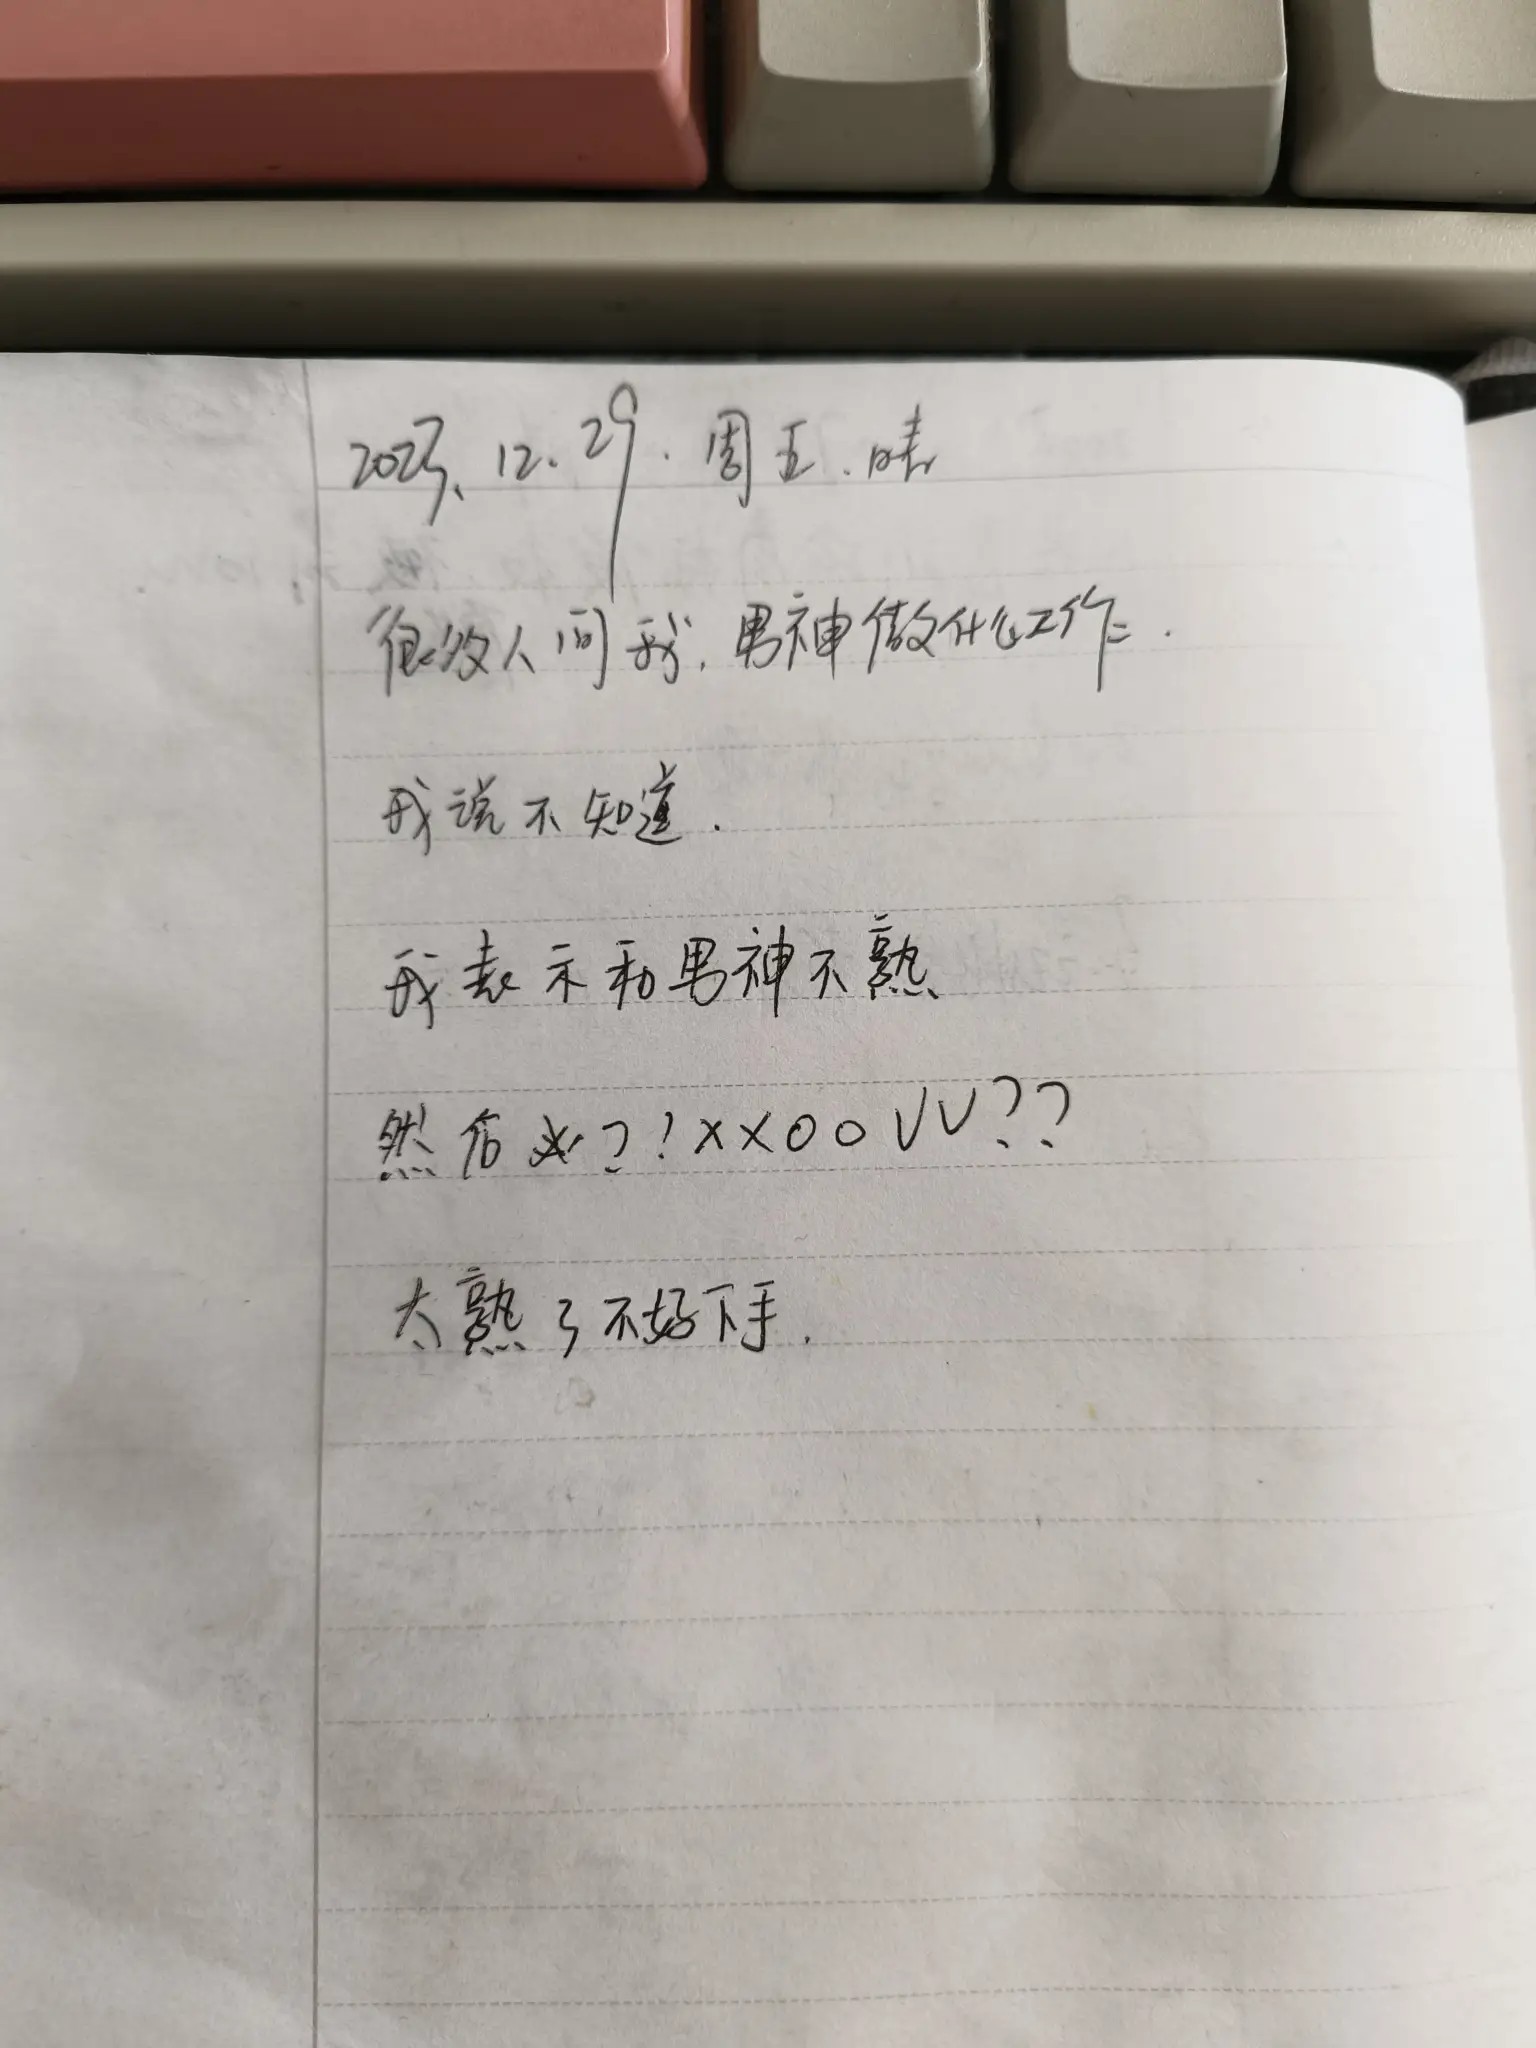 2023.12.29.周五.晴
很多人问我,男神做什么工作.
我说不知道.
我表示和男神不熟
然后 ?!××○○√√??
太熟了不好下手.